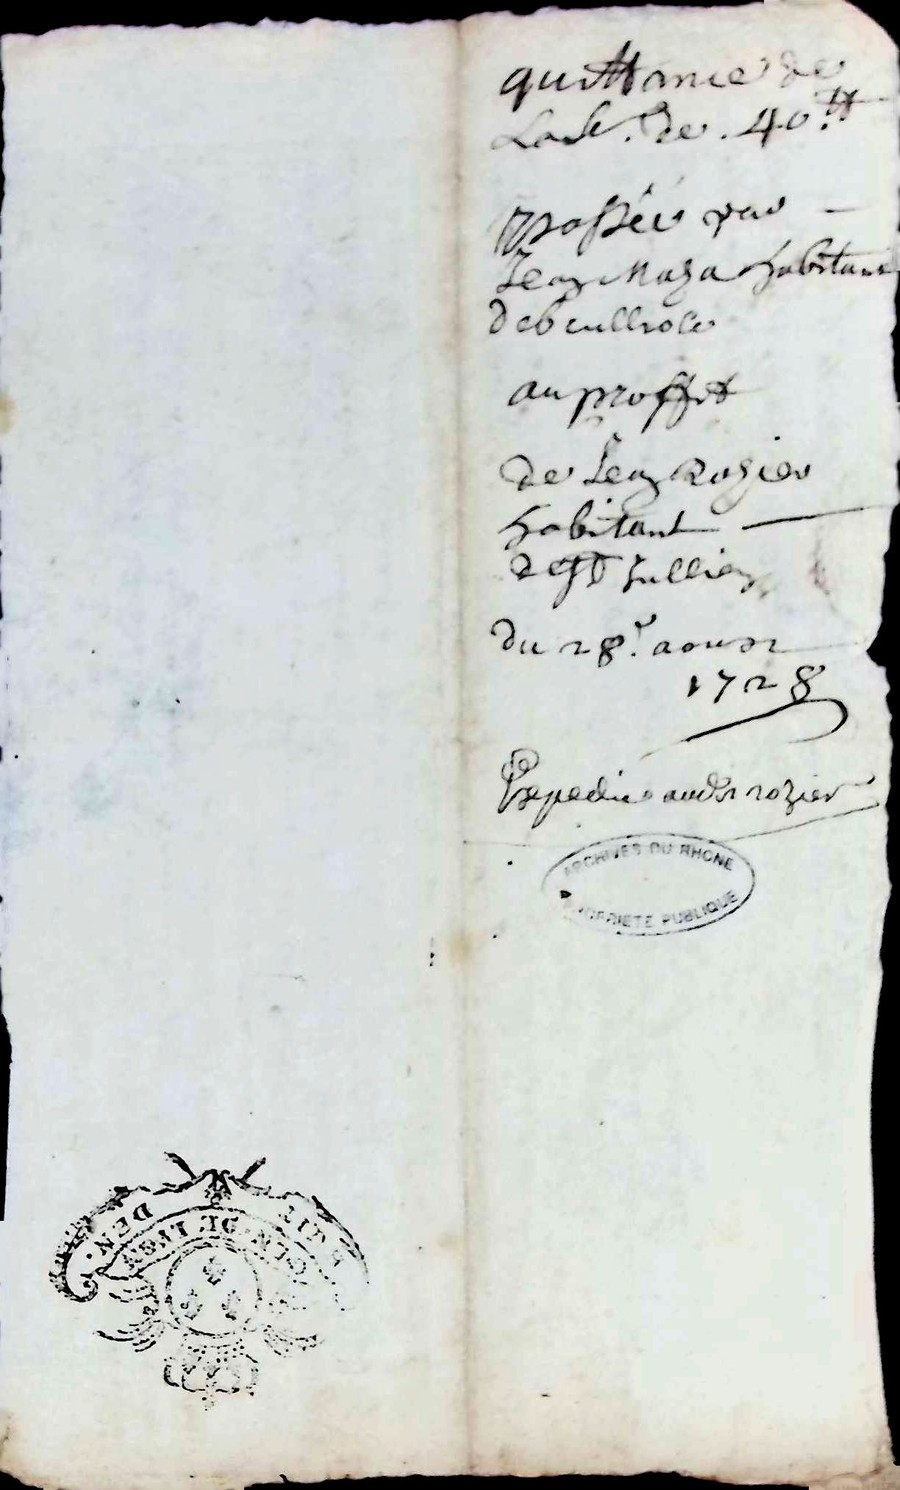 quittance de
La so. de. 40.tt
passée par —
Jean Maza habitant
au proffit
de Jean Rozier
habitant —
de St Jullien
du 28.e aoust
1728
Expedié audit rozier
ARCHIVES DU RHONE
PROPRIETE PUBLIQUE
HUIT DEN.
GEN. DE LION